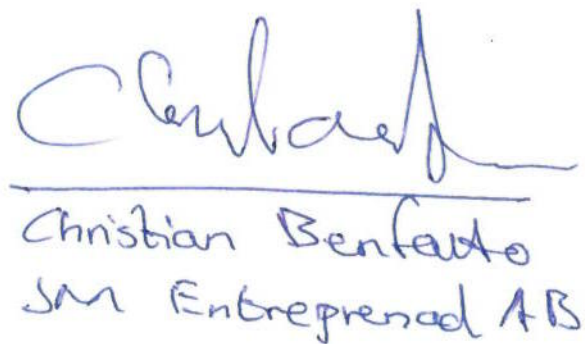 Christian Benfatto
JM Entreprenad AB